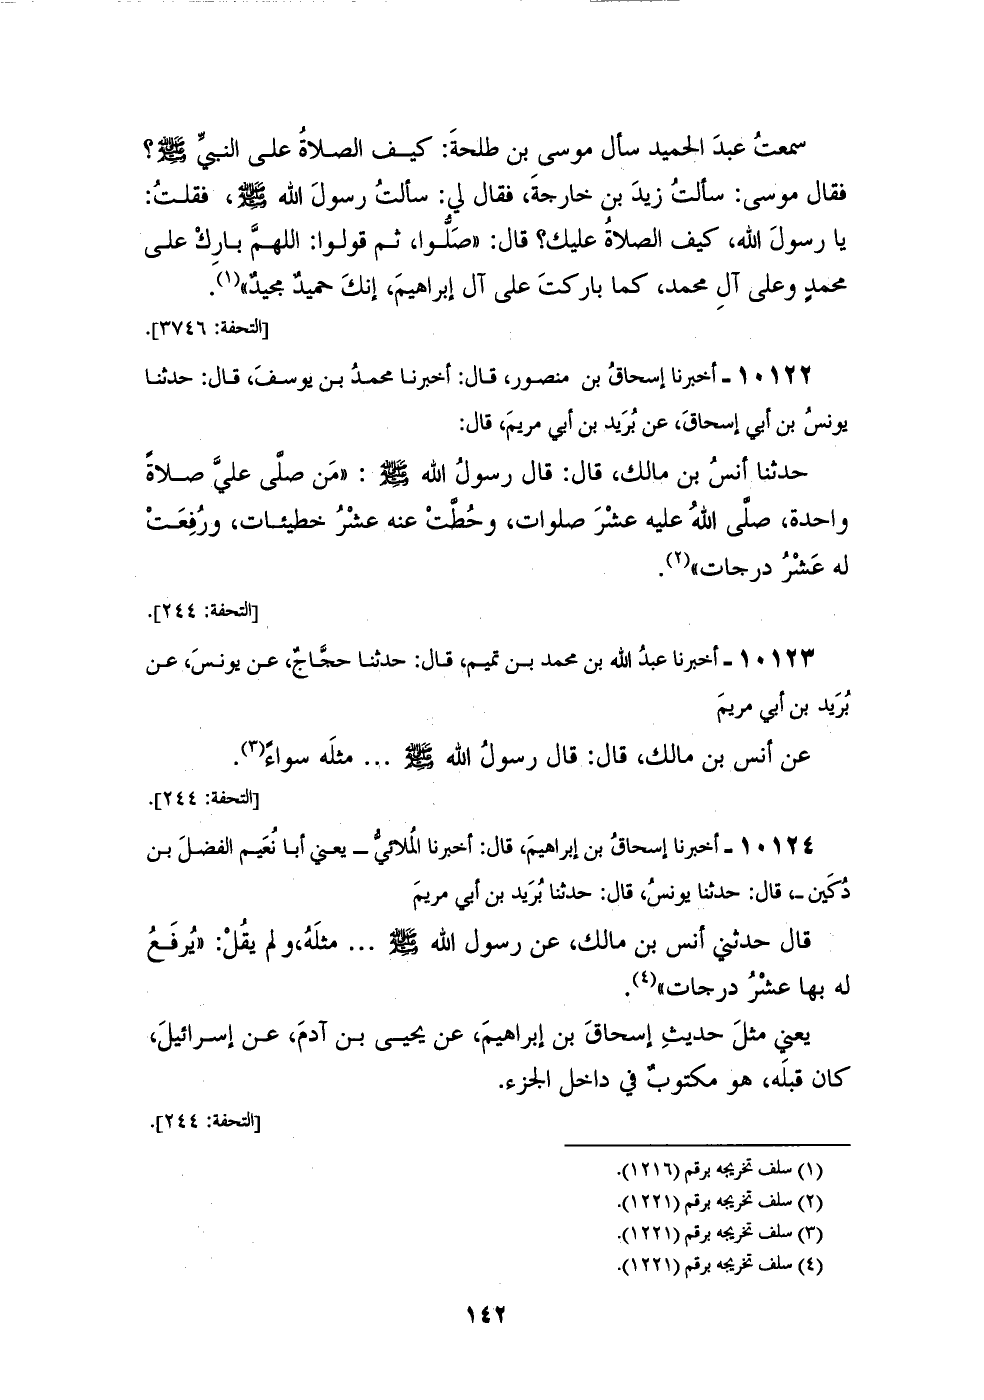 سمعتُ عبدَ الحميد سأل موسى بن طلحةَ: كيـف الصلاةُ على النبيِّ ﷺ؟
فقال موسى: سألتُ زيدَ بن خارجةَ، فقال لي: سألتُ رسولَ الله ﷺ، فقلتُ:
يا رسولَ الله، كيف الصلاةُ عليك؟ قال: «صَلُّوا، ثم قولوا: اللهمَّ بارِكْ على
محمدٍ وعلى آلِ محمد، كما باركتَ على آل إبراهيمَ، إنكَ حميدٌ مجيدٌ»(١).
[التحفة: ٣٧٤٦].
١٠١٢٢ - أخبرنا إسحاقُ بن منصور، قال: أخبرنا محمدُ بن يوسفَ، قال: حدثنا
يونسُ بن أبي إسحاقَ، عن بُرَيد بن أبي مريمَ، قال:
حدثنا أنسُ بن مالك، قال: قال رسولُ الله ﷺ : «مَن صلَّى عليَّ صلاةً
واحدة، صلَّى اللهُ عليه عشْرَ صلوات، وحُطَّتْ عنه عشْرُ خطيئات، ورُفِعَتْ
له عَشْرُ درجات»(٢).
[التحفة: ٢٤٤].
١٠١٢٣ - أخبرنا عبدُ الله بن محمد بن تميم، قال: حدثنا حجَّاجٌ، عن يونسَ، عن
بُرَيد بن أبي مريمَ
عن أنس بن مالك، قال: قال رسولُ الله ﷺ ... مثلَه سواءً(٣).
[التحفة: ٢٤٤].
١٠١٢٤ - أخبرنا إسحاقُ بن إبراهيمَ، قال: أخبرنا المُلائيُّ ـ يعني أبا نُعَيم الفضلَ بن
دُكَين ـ، قال: حدثنا يونسُ، قال: حدثنا بُرَيد بن أبي مريمَ
قال حدثني أنس بن مالك، عن رسول الله ﷺ ... مثلَهُ،و لم يقُلْ: «يُرفَعُ
له بها عشْرُ درجات»(٤).
يعني مثلَ حديثِ إسحاقَ بن إبراهيمَ، عن يحيى بن آدمَ، عن إسرائيلَ،
كان قبلَه، هو مكتوبٌ في داخل الجزء.
[التحفة: ٢٤٤].
(١) سلف تخريجه برقم (١٢١٦).
(٢) سلف تخريجه برقم (١٢٢١).
(٣) سلف تخريجه برقم (١٢٢١).
(٤) سلف تخريجه برقم (١٢٢١).
١٤٢